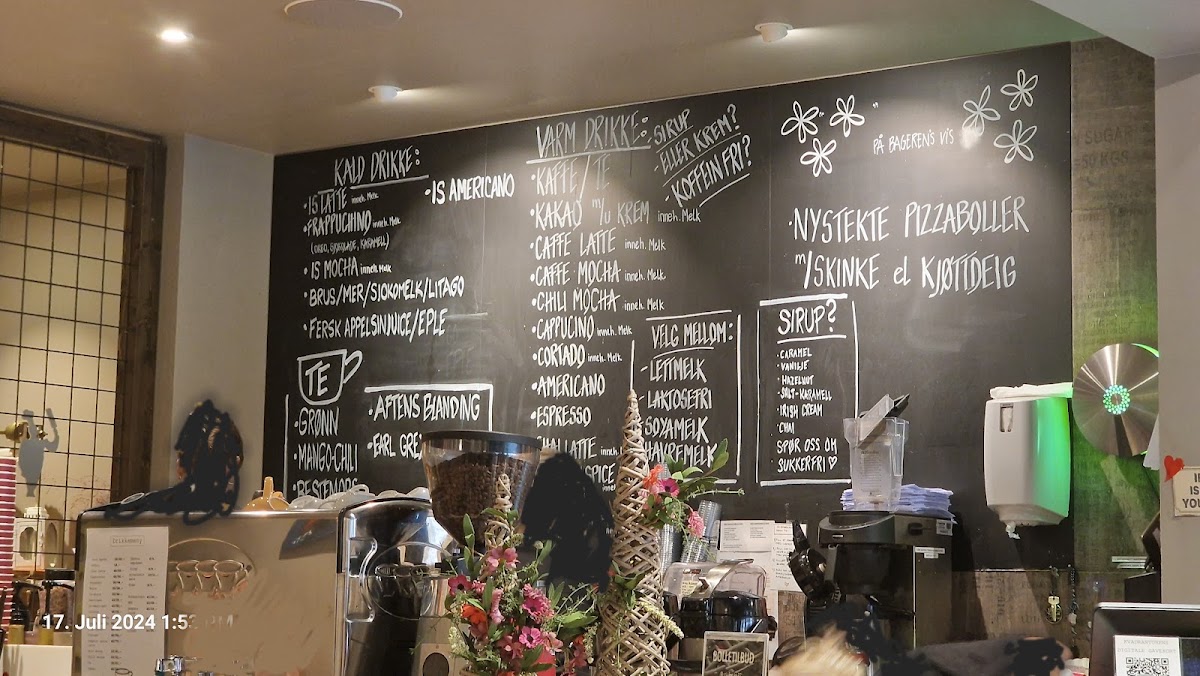 KALD DRIKKE:
• IS LATTE inneh. Melk
- IS AMERICANO
• FRAPPUCHINO inneh. Melk
(OREO, SJOKOLADE, KARAMELL)
• IS MOCHA inneh. Melk
• BRUS/MER/SJOKOMELK/LITAGO
• FERSK APPELSINJUICE/EPLE
TE
• GRØNN
• MANGO-CHILI
• AFTENS BLANDING
• EARL
VARM DRIKKE:
• KAFFE/TE
• KAKAO m/u KREM inneh. Melk
• CAFFE LATTE inneh. Melk
• CAFFE MOCHA inneh. Melk
• CHILI MOCHA inneh. Melk
• CAPPUCINO inneh. Melk
• CORTADO inneh. Melk
• AMERICANO
• ESPRESSO
CHAI LATTE inneh.
SPICE inneh.
SIRUP
ELLER KREM?
- KOFFEIN FRI?
VELG MELLOM:
- LETTMELK
- LAKTOSEFRI
- SOYAMELK
HAVREMELK
PÅ BAGERENS VIS
• NYSTEKTE PIZZABOLLER
m/SKINKE el KJØTTDEIG
SIRUP?
• CARAMEL
• VANILJE
• HAZELNUT
• SALT-KARAMELL
• IRISH CREAM
• CHAI
SPØR OSS OM
SUKKERFRI ♡
SUGAR
50 KGS
BOLLETILBUD
17. Juli 2024 1:5